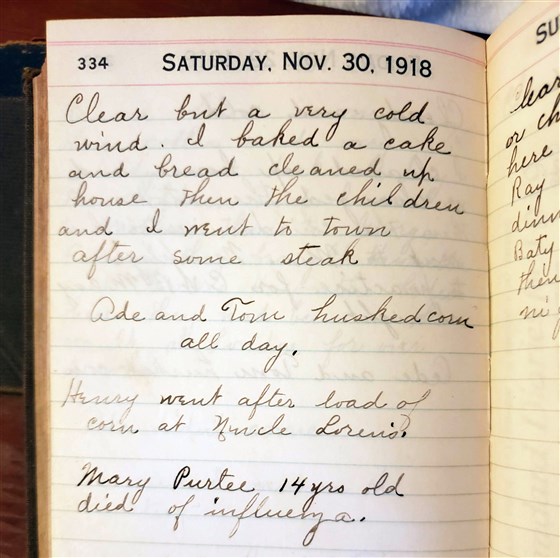 334 SATURDAY, NOV. 30, 1918
Clear but a very cold
wind. I baked a cake
and bread cleaned up
house then the children
and I went to town
after some steak
Ade and Tom husked corn
all day.
Henry went after load of
corn at Uncle Loren's.
Mary Purtee 14 yrs old
died of influenza.
SU
clear
or ch
here
Ray
dinn
Baty
then